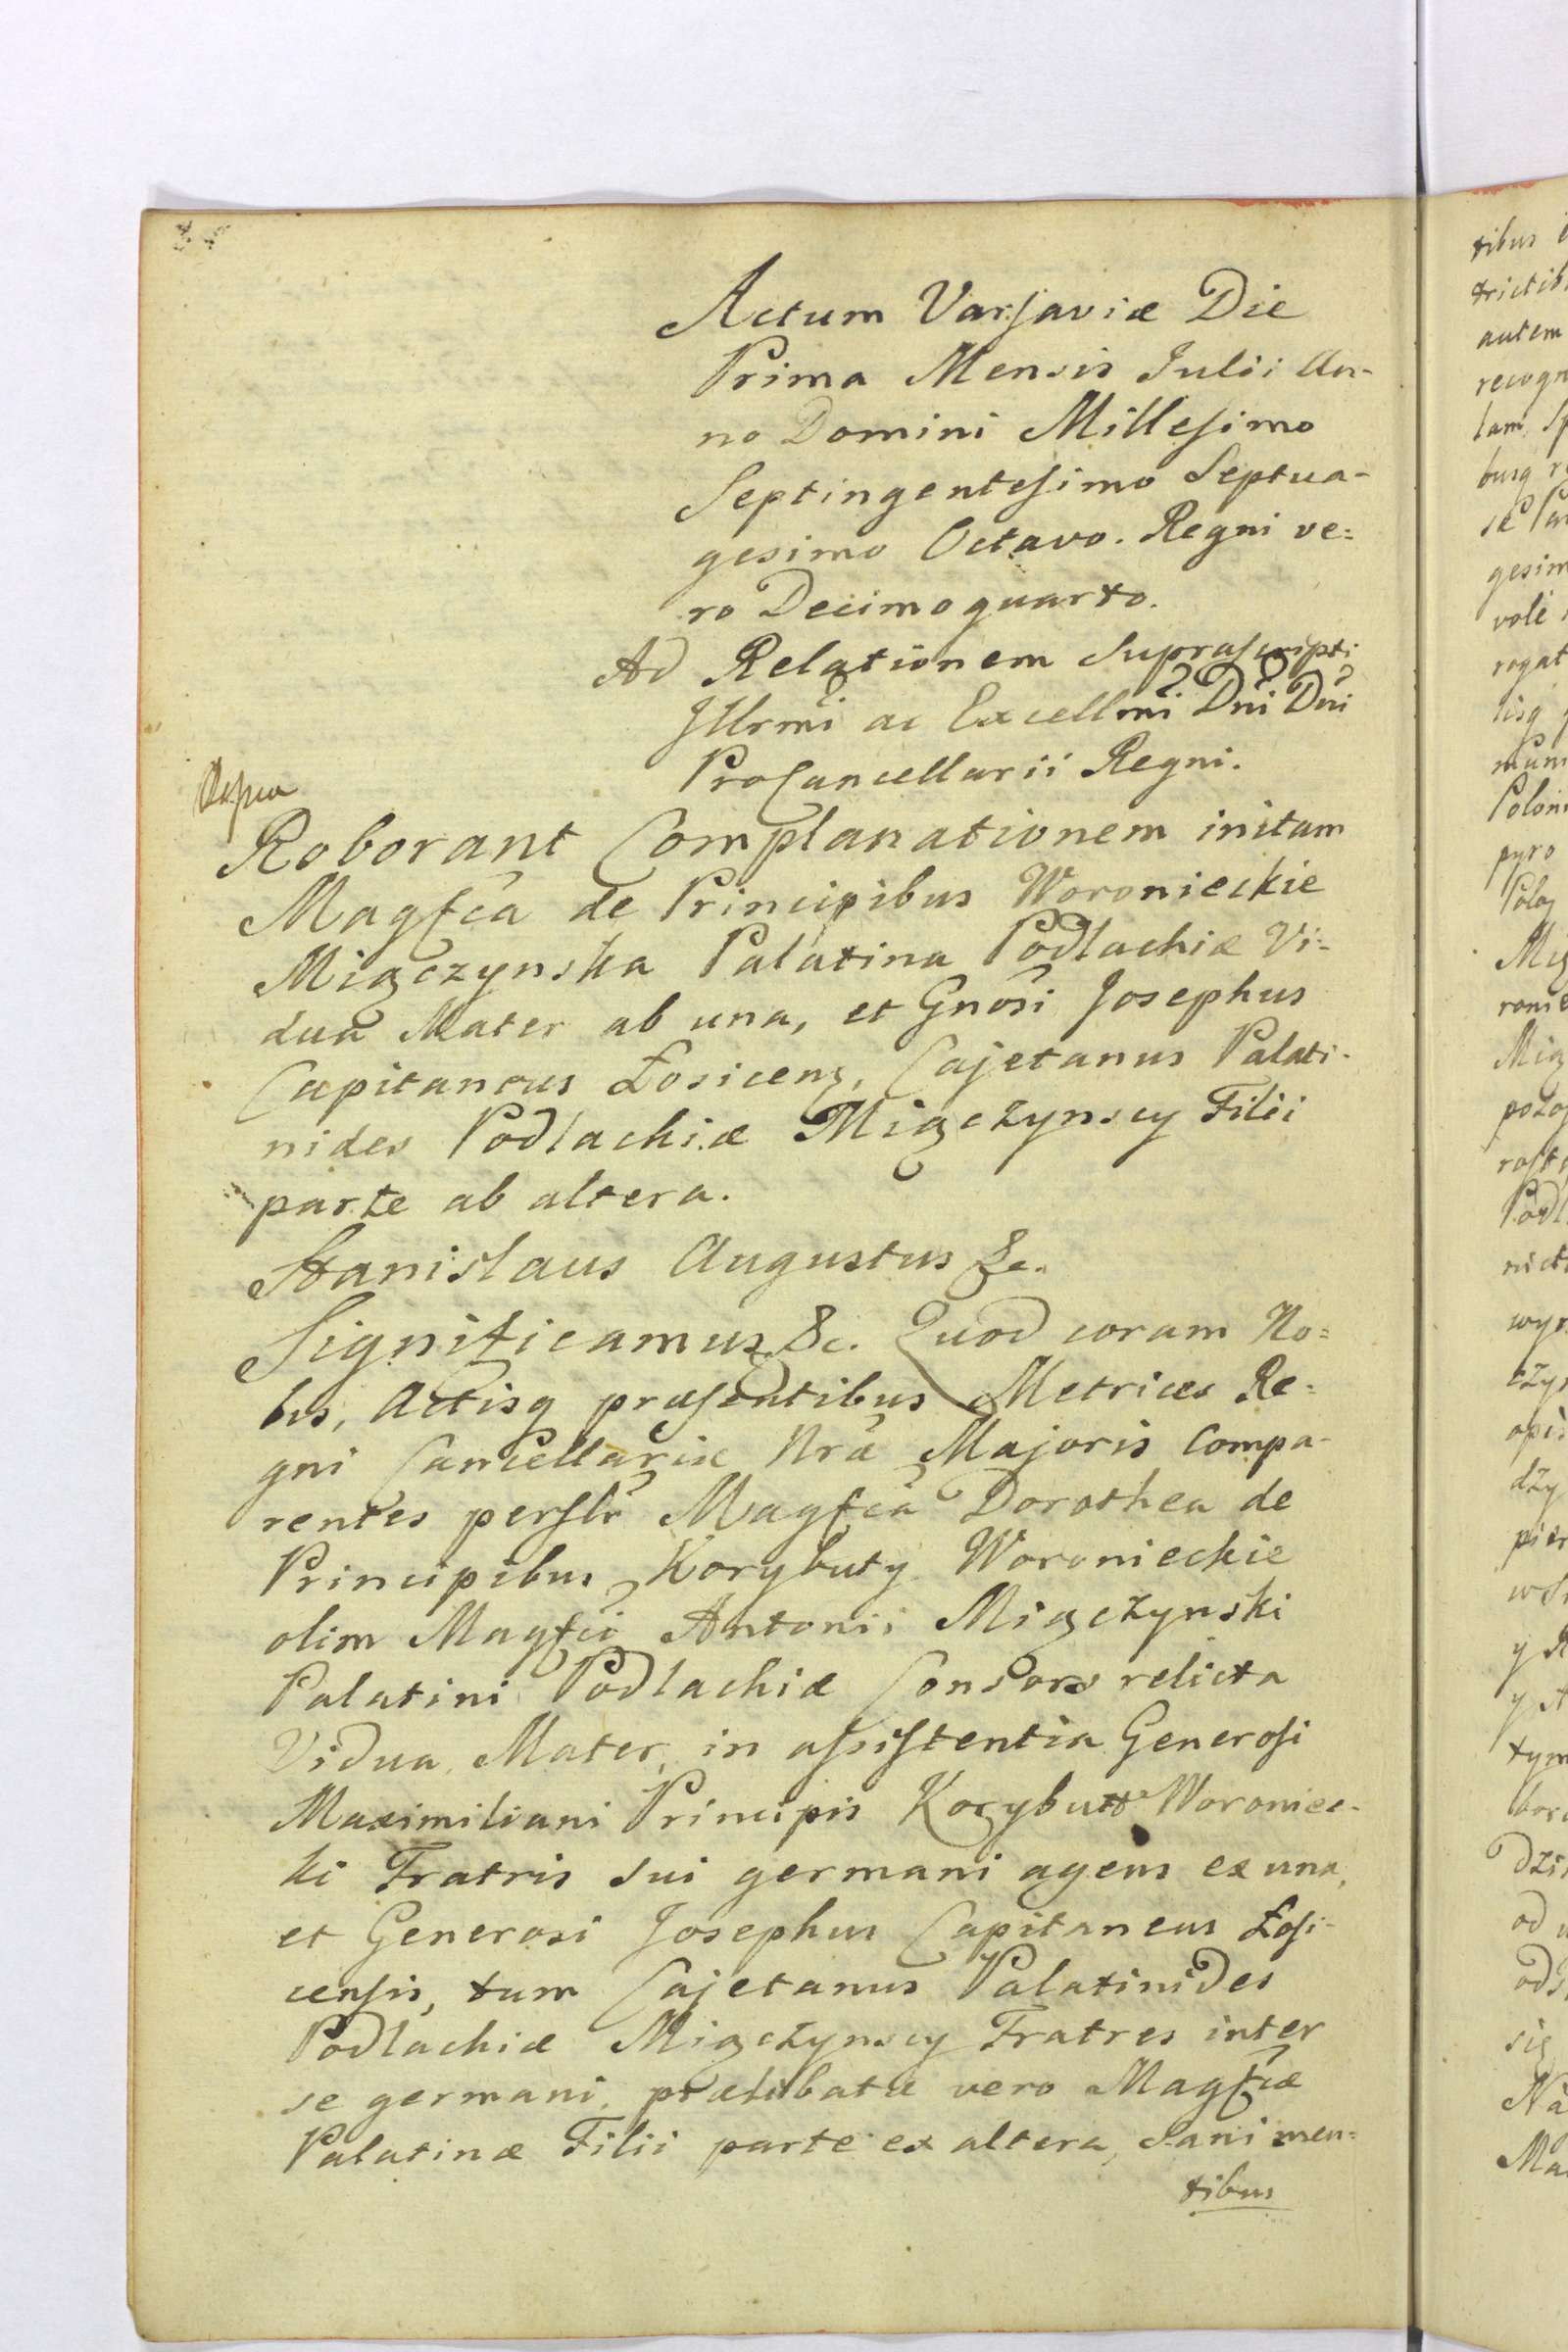 Actum Varsaviæ Die
Prima Mensis Julii An-
no Domini Millesimo
Septingentesimo Septua-
gesimo Octavo. Regni ve=
ro Decimoquarto.
Ad Relationem Suprascripti
Jllrmi ac Excellmi Dni Dni
ProCancellarii Regni.
Roborant Complanationem initam
Magfca de Principibus Woronieckie
Miączynska Palatina Podlachiæ Vi-
dua Mater ab una, et Gnosi Josephus
Capitaneus Łosicens, Cajetanus Palati-
nides Podlachiæ Miączynscy Filii
parte ab altera.
Stanislaus Augustus &c.
Significamus &c. Quod coram No=
bis, Actisq præsentibus Metrices Re=
gni Cancellariæ Nræ Majoris Compa-
rentes perslr Magfca Dorothea de
Principibus Korybuty Woronieckie
olim Magfci Antonii Miączynski
Palatini Podlachiæ Consors relicta
Vidua, Mater, in assistentia Generosi
Maximiliani Principis Korybutt Woroniec-
ki Fratris sui germani agens ex una,
et Generosi Josephus Capitaneus Łosi-
censis, tum Cajetanus Palatinides
Podlachiæ Miączynscy Fratres inter
se germani, prælibatæ vero Magfcæ
Palatinæ Filii parte ex altera, Sani men=
tibus
tibus
autem
recogn
gesim
rogat